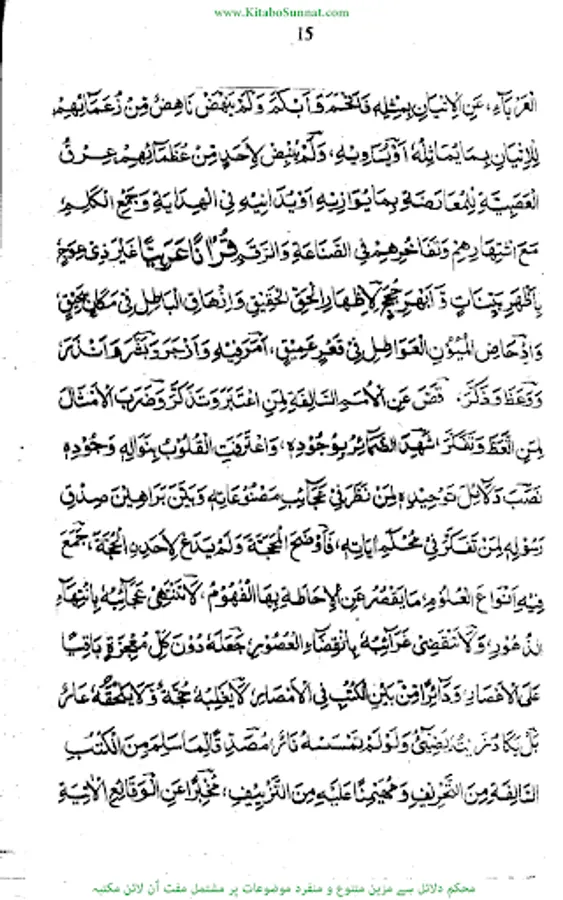 www.KitaboSunnat.com
15
العرباء، عن الإتيان بمثله فأفحم وأبكم ولم ينهض ناهض من زعمائهم
للإتيان بما يماثله أو يساويه، ولم ينبض لأحد من عظمائهم عرق
العصبية للمعارضة بما يوازيه أو يدانيه في الهداية وجمع الكلم
مع اشتهارهم وتفاخرهم في الصناعة والرقم قرآنا عربيا غير ذي عوج
بأظهر بينات وأبهر حجج لإظهار الحق الحقيق وإزهاق الباطل في مكان سحيق
وإدحاض العواطل في قعر عميق، أمر فيه وأزجر وبشر وأنذر
ووعظ وذكر، قص عن الأمم السالفة لمن اعتبر وتذكر وضرب الأمثال
لمن اتعظ وتفكر اشهد الضمائر بوجوده، واعترفت القلوب بنواله وجوده
نصب دلائل توحيده لمن نظر في عجائب مصنوعاته وبين براهين صدق
رسوله لمن تفكر في محكم آياته، فأوضح المحجة ولم يدع لأحد الحجة، جمع
فيه أنواع العلوم ما يقصر عن الإحاطة بها الفهوم، لا تنتهي عجائبه بانتهاء
الدهور ولا تنقضي غرائبه بانقضاء العصور جعله دون كل معجزة باقيا
على الأعصار ودائرا من بين الكتب في الأمصار لا يغلبه حجة ولا يلحقه عار
بل يكاد زيته يضيء ولو لم تمسسه نار مصدقا لما سلم من الكتب
السالفة من التحريف ومهيمنا عليه من التزييف، مخبرا عن الوقائع الآتية
محکم دلائل سے مزین متنوع و منفرد موضوعات پر مشتمل مفت آن لائن مکتبہ